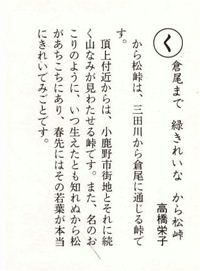 く
倉尾まで 緑きれいな から松峠
高橋栄子
から松峠は、三田川から倉尾に通じる峠で
す。
頂上付近からは、小鹿野市街地とそれに続
く山なみが見わたせる峠です。また、名のお
こりのように、いつ生えたとも知れぬから松
があちこちにあり、春先にはその若葉が本当
にきれいでみごとです。